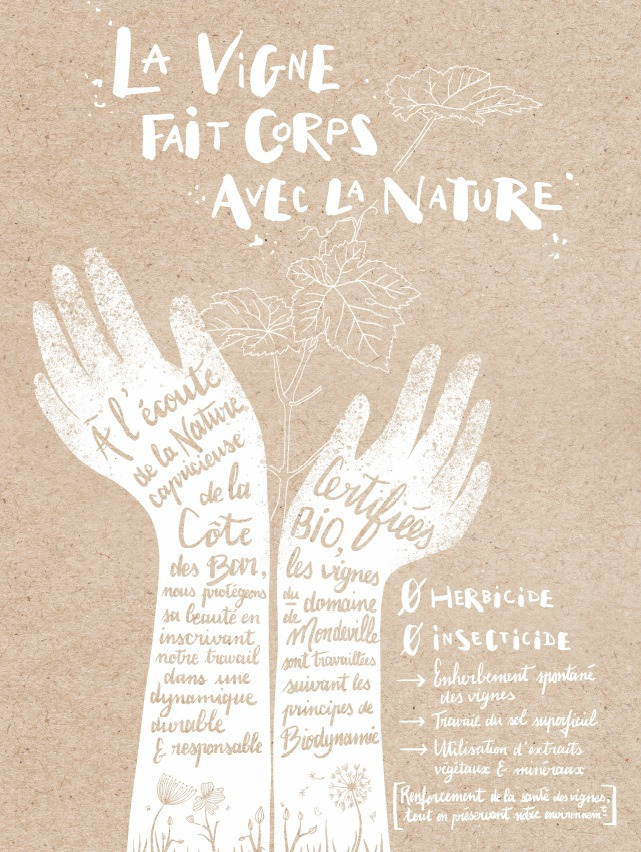 LA VIGNE
FAIT CORPS
AVEC LA NATURE
À l'écoute
de la Nature
capricieuse
de la
Côte
des Bar,
nous protégeons
sa beauté en
inscrivant
notre travail
dans une
dynamique
durable
& responsable
Certifiées
BIO,
les vignes
du domaine
de Mondeville
sont travaillées
suivant les
principes de
Biodynamie
Ø HERBICIDE
Ø INSECTICIDE
→ Enherbement spontané
des vignes
→ Travail du sol superficiel
→ Utilisation d'extraits
végétaux & minéraux
[Renforcement de la santé des vignes,
tout en préservant notre environnemt]